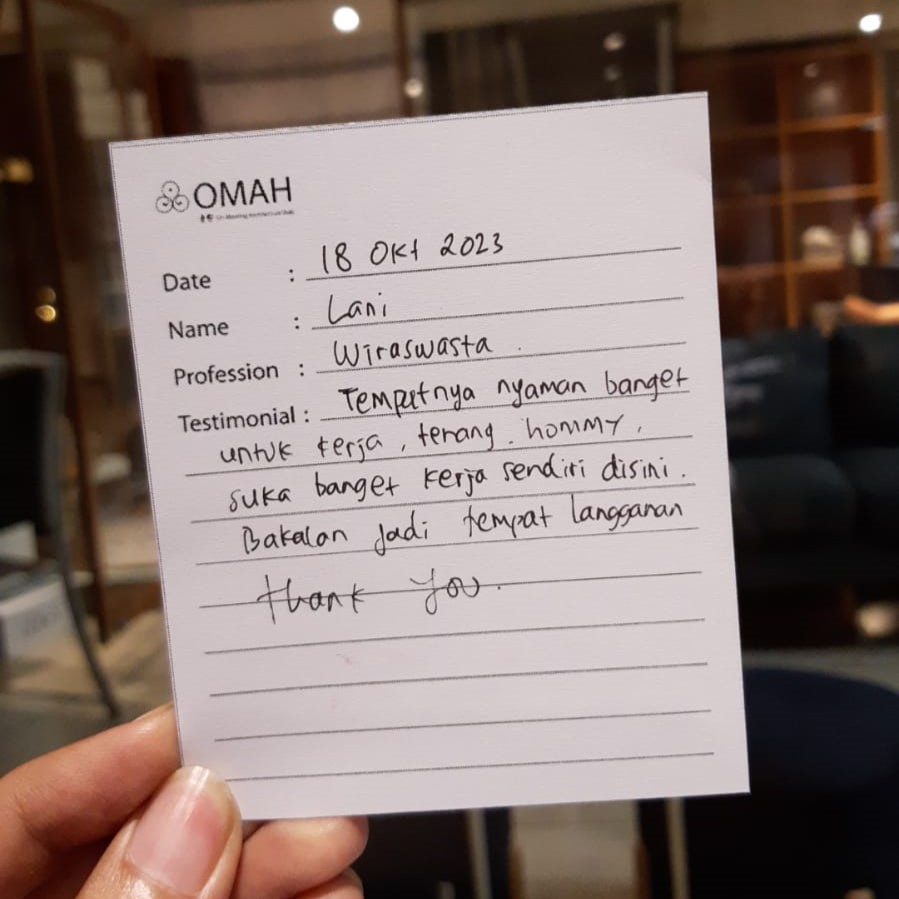 OMAH
Date : 18 Okt 2023
Name : Lani
Profession : Wiraswasta .
Testimonial : Tempatnya nyaman banget
untuk kerja, tenang. hommy,
suka banget kerja sendiri disini.
Bakalan jadi tempat langganan
thank you.